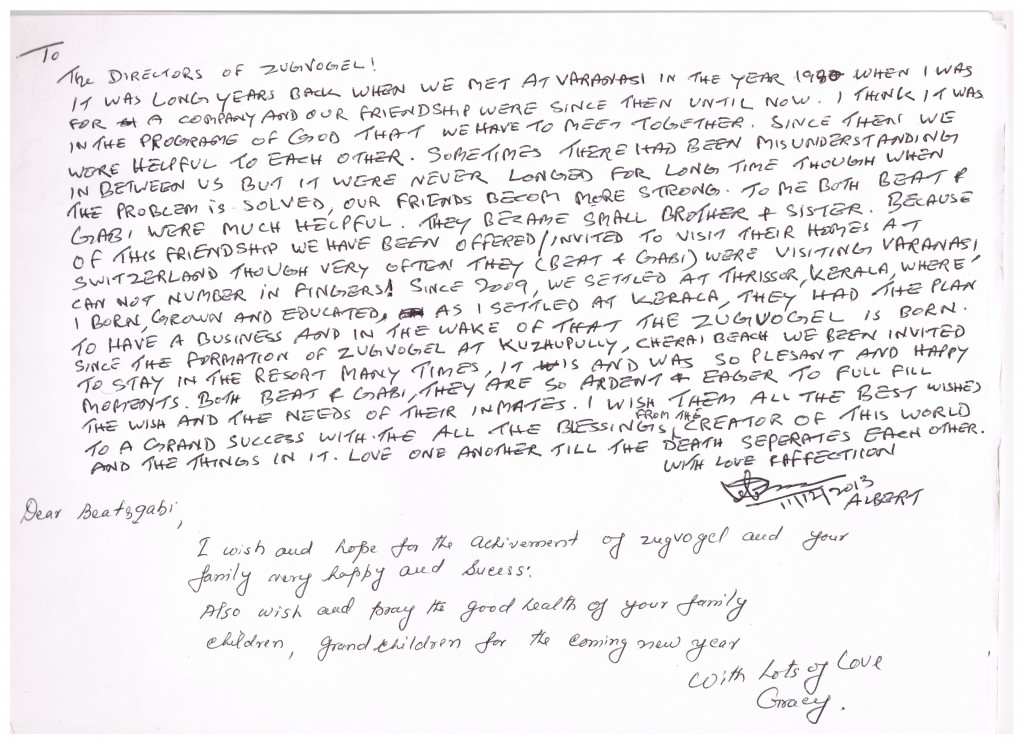 To
The DIRECTORS OF ZUGVOGEL!
IT WAS LONG YEARS BACK WHEN WE MET AT VARANASI IN THE YEAR 1980 WHEN I WAS
FOR A COMPANY AND OUR FRIENDSHIP WERE SINCE THEN UNTIL NOW. I THINK IT WAS
IN THE PROGRAME OF GOOD THAT WE HAVE TO MEET TOGETHER. SINCE THEN WE
WERE HELPFUL TO EACH OTHER. SOMETIMES THERE HAD BEEN MISUNDERSTANDING
IN BETWEEN US BUT IT WERE NEVER LONGED FOR LONG TIME THOUGH WHEN
THE PROBLEM is SOLVED, OUR FRIENDS BECOM MORE STRONG. TO ME BOTH BEAT &
GABI WERE MUCH HELPFUL. THEY BECAME SMALL BROTHER & SISTER. BECAUSE
OF THIS FRIENDSHIP WE HAVE BEEN OFFERED/INVITED TO VISIT THEIR HOMES AT
SWITZERLAND THOUGH VERY OFTEN THEY (BEAT & GABI) WERE VISITING VARANASI
CAN NOT NUMBER IN FINGERS! SINCE 2009, WE SETTLED AT THRISSOR, KERALA, WHERE
I BORN, GROWN AND EDUCATED, AS I SETTLED AT KERALA, THEY HAD THE PLAN
TO HAVE A BUSINESS AND IN THE WAKE OF THAT THE ZUGVOGEL IS BORN.
SINCE THE FORMATION OF ZUGVOGEL AT KUZHUPULLY, CHERAI BEACH WE BEEN INVITED
TO STAY IN THE RESORT MANY TIMES, IT IS AND WAS SO PLESANT AND HAPPY
MOMENTS. BOTH BEAT & GABI, THEY ARE SO ARDENT & EAGER TO FULL FILL
THE WISH AND THE NEEDS OF THEIR INMATES. I WISH THEM ALL THE BEST WISHES
TO A GRAND SUCCESS WITH THE ALL THE BLESSINGS FROM THE CREATOR OF THIS WORLD
AND THE THINGS IN IT. LOVE ONE ANOTHER TILL THE DEATH SEPERATES EACH OTHER.
WITH LOVE & AFFECTIION
11/12/2013
ALBERT
Dear Beat&gabi,
I wish and hope for the achivement of zugvogel and your
family very happy and sucess.
Also wish and pray the good health of your family
children, grand children for the coming new year
With Lots of Love
Gracy.